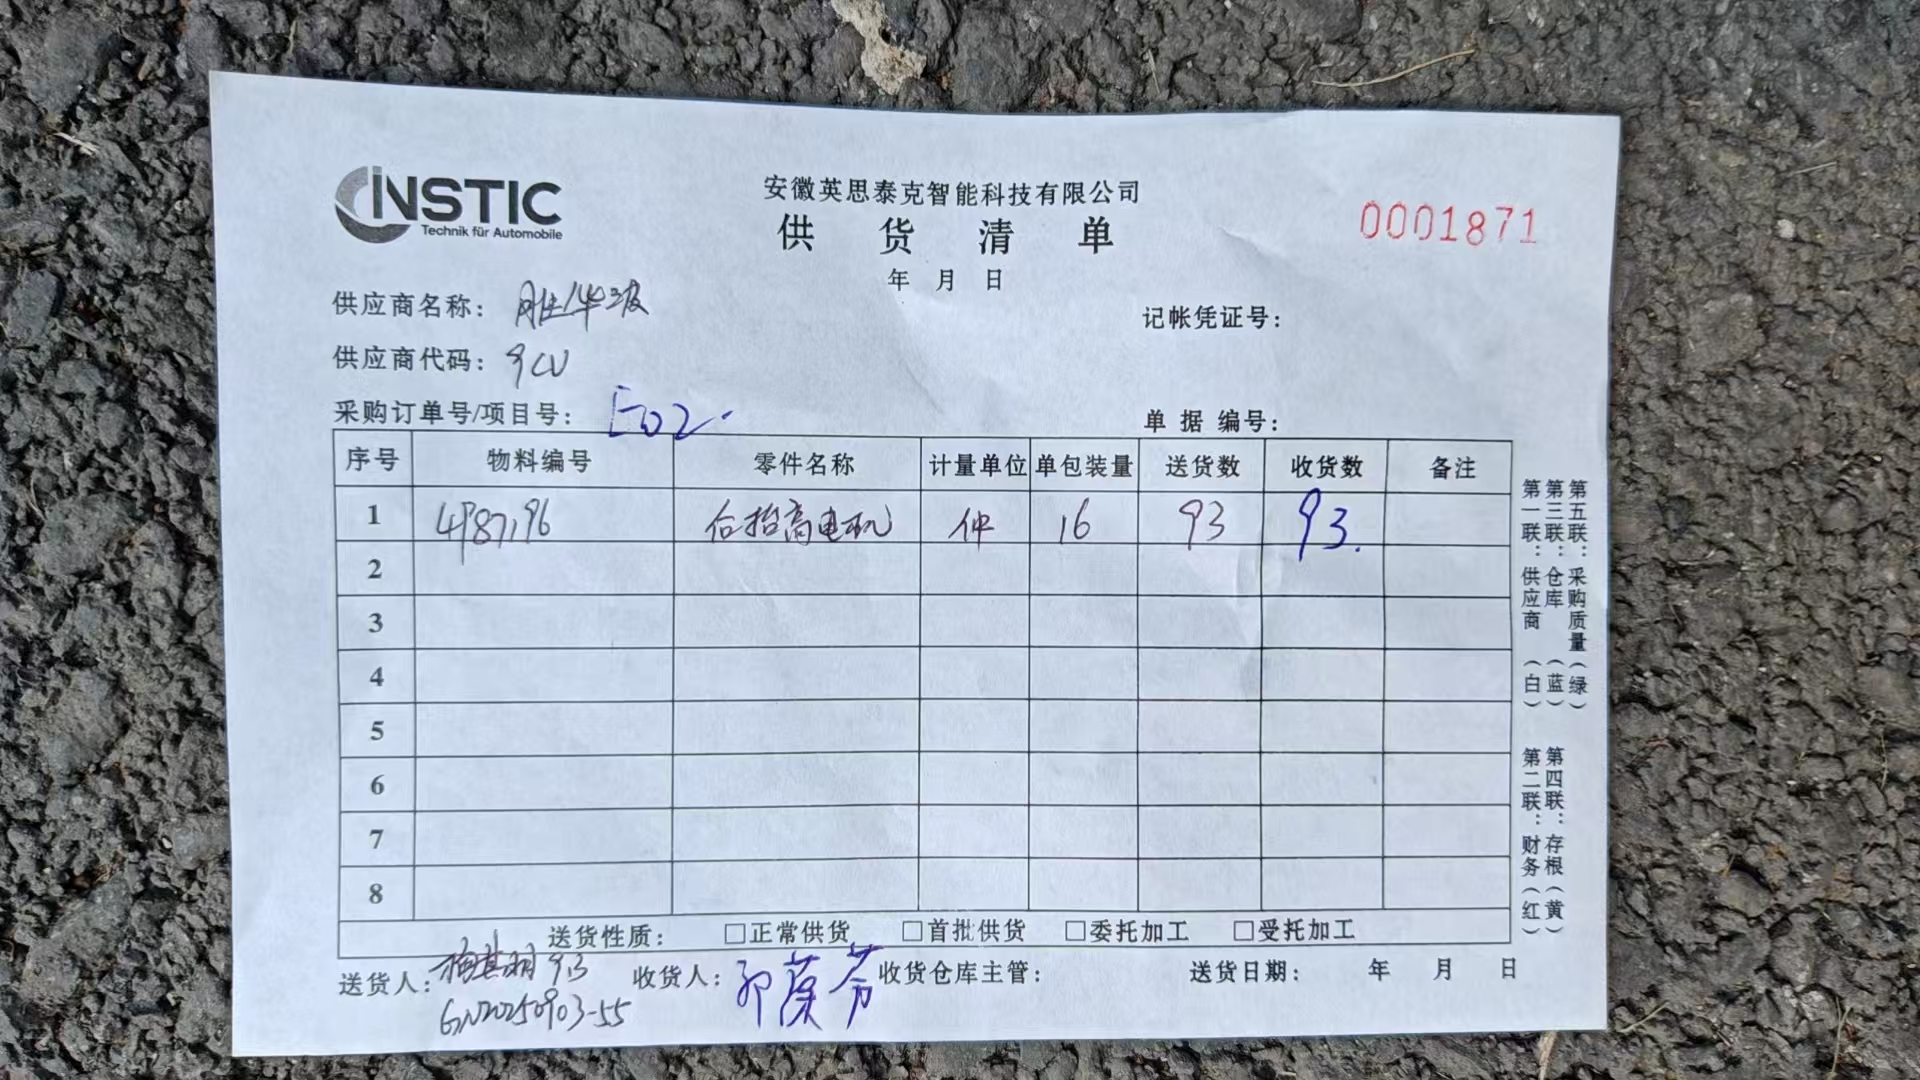 INSTIC
Technik für Automobile
安徽英思泰克智能科技有限公司
供货清单
0001871
年 月 日
供应商名称：胜华波
记帐凭证号：
供应商代码：9CU
采购订单号/项目号：E02
单据编号：
序号 物料编号 零件名称 计量单位 单包装量 送货数 收货数 备注
1 抬高电机 件 16 93 93.
2
3
4
5
6
7
8
送货性质： □正常供货 □首批供货 □委托加工 □受托加工
送货人： 9.3 收货人： 收货仓库主管： 送货日期： 年 月 日
GN20250903-55
第一联：供应商（白）
第三联：仓库（蓝）
第五联：采购质量（绿）
第二联：财务（红）
第四联：存根（黄）